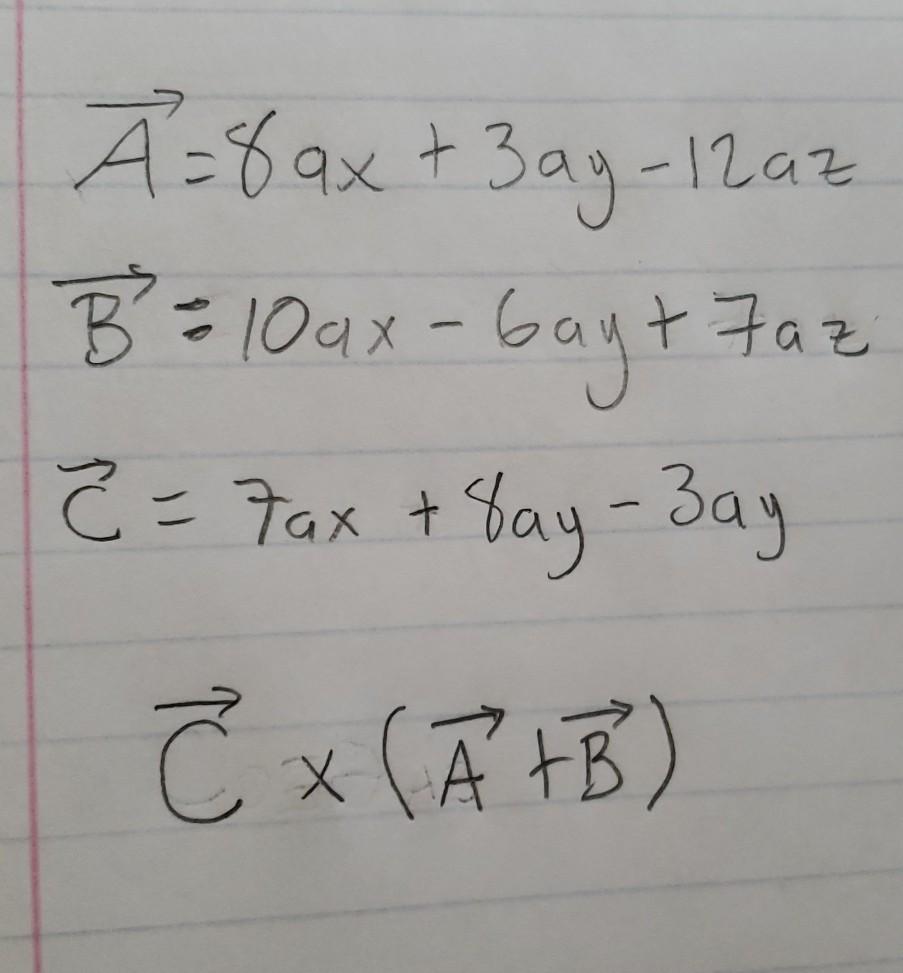 A⃗ = 8ax + 3ay - 12az
B⃗ = 10ax - 6ay + 7az
C⃗ = 7ax + 8ay - 3ay
C⃗ x (A⃗ + B⃗)